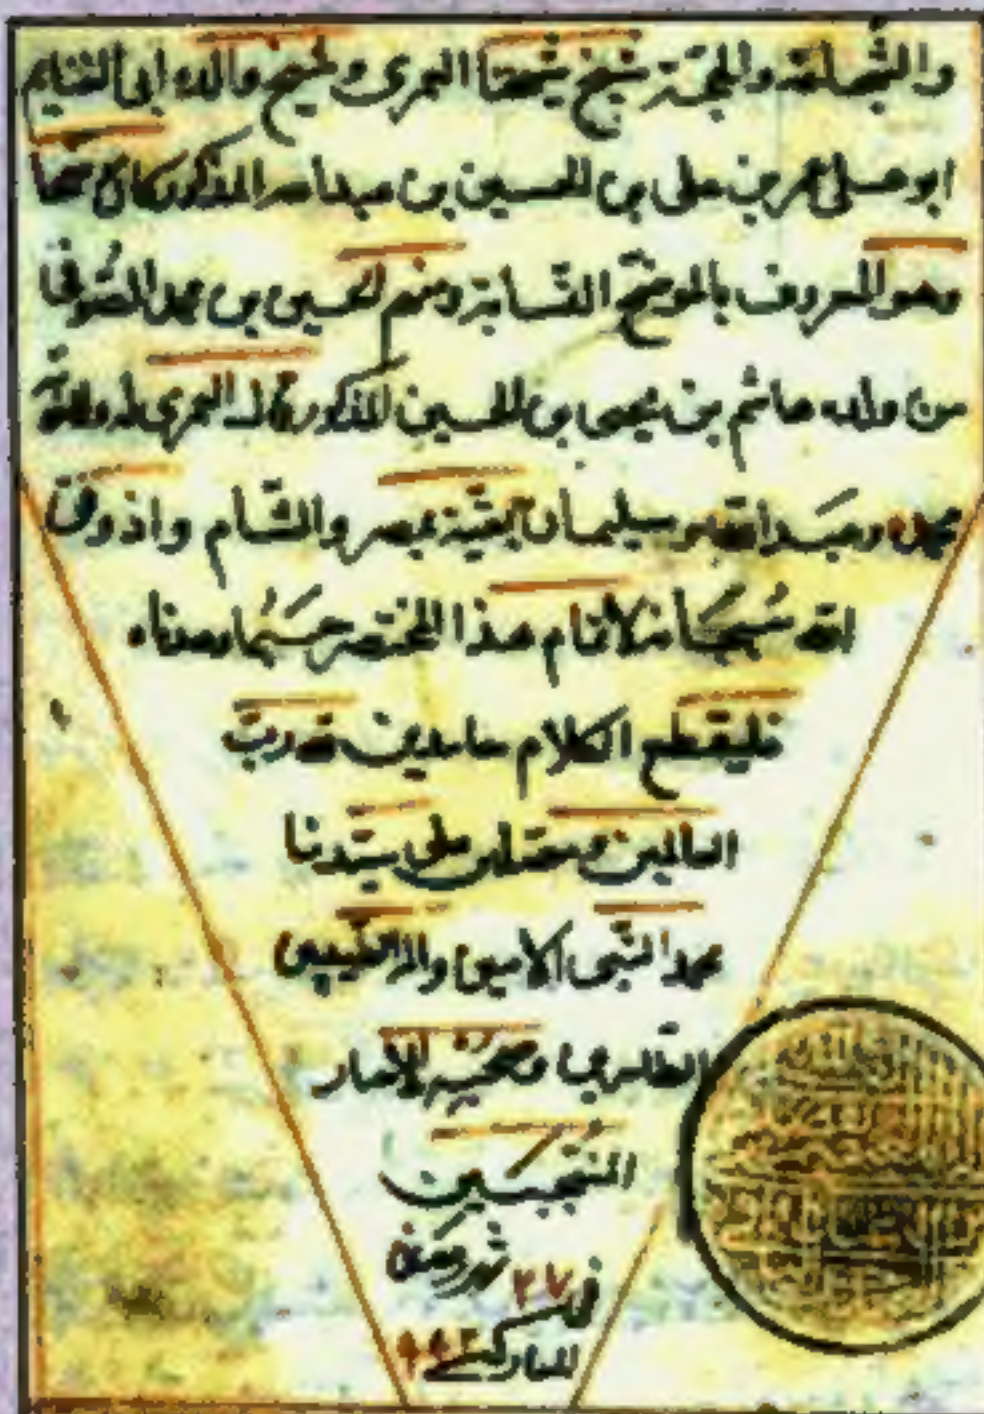 والشجاعة والحجة شيخ شيخنا العمرى وشيخ والده ابى الغنايم
ابو على عمر بن على بن الحسين بن عبدالله المذكور كان
وهو المعروف بالموضح النسابة ومنهم الحسين بن محمد الصوفى
من ولده هاشم بن يحيى بن الحسين المذكور قال العمرى
محمد وعبدالله وسليمان بقية بمصر والشام واذ وفق
الله سبحانه لاتمام هذا المختصر حسبما وعدناه
فليقطع الكلام حامدين لله رب
العالمين ومصلين على سيدنا
محمد النبى الامين واله الطيبين
الطاهرين وصحبه
المنتجبين
فى ٢٧ شهر رمضان
المبارك سنة